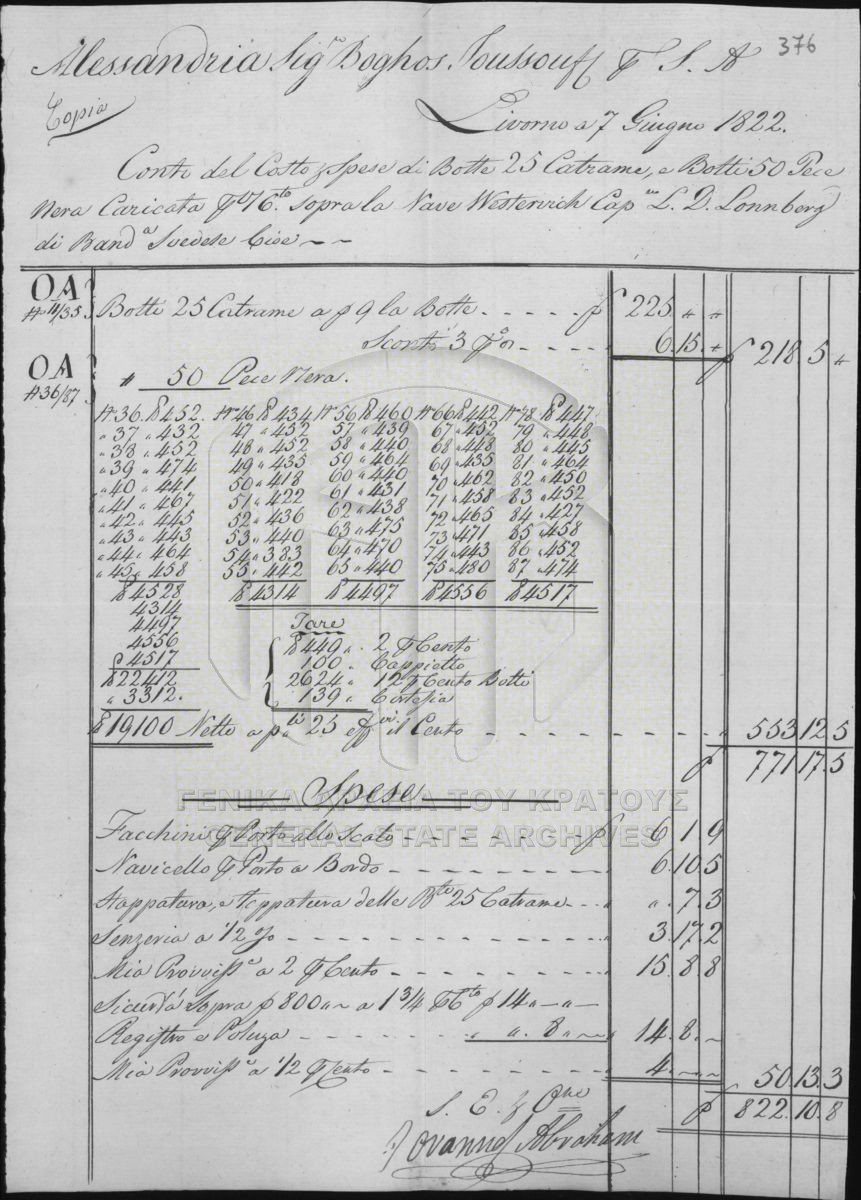 376
Alessandria Sigʳ Boghos Joussouff ⅌ S. A
Copia
Livorno a 7 Giugno 1822.
Conto del Costo, e Spese di Botte 25 Catrame, e Botti 50 Pece
Nera Caricata sopra la Nave Westervich Capᵐ L. D. Lonnberg
di Bandᵃ Svedese Cioe ~ ~
OA
# 11/35 Botti 25 Catrame a p 9 la Botte - - - - - p 225 " "
Sconto 3 ⅌ % - - - - - 6.15. " p 218.5 "
OA
# 36/87 " 50 Pece Nera.
№ 36. ₤ 452. № 46 ₤ 434 № 56 ₤ 460 № 66 ₤ 442 № 78 ₤ 447
" 37 " 432 47 " 432 57 " 439 67 " 452 79 " 448
" 38 " 452 48 " 452 58 " 440 68 " 448 80 " 445
" 39 " 474 49 " 435 59 " 464 69 " 435 81 " 464
" 40 " 441 50 " 418 60 " 440 70 " 462 82 " 450
" 41 " 467 51 " 422 61 " 431 71 " 458 83 " 452
" 42 " 445 52 " 436 62 " 438 72 " 465 84 " 427
" 43 " 443 53 " 440 63 " 475 73 " 471 85 " 458
" 44 " 464 54 " 383 64 " 470 74 " 443 86 " 452
" 45 " 458 55 " 442 65 " 440 75 " 480 87 " 474
₤ 4528 ₤ 4314 ₤ 4497 ₤ 4556 ₤ 4517
4314
4497
4556
₤ 4517
₤ 22412
" 3312.
Tare
₤ 449 " 2 ⅌ Cento
100 " Cappietto
2624 " 12 ⅌ Cento Botti
139 " Cortesia
₤ 19100 Netto a pˡⁱ 25 effᵛⁱ il Cento - - - - - " 553 12 5
p 771 17.5
Spese
ΓΕΝΙΚΑ ΑΡΧΕΙΑ ΤΟΥ ΚΡΑΤΟΥΣ
GENERAL STATE ARCHIVES
Facchini ⅌ Porto allo Scalo - - - - - p 6 1 9
Navicello ⅌ Porto a Bordo - - - - - 6.10.5
Stappatura, e Toppatura delle Bᵗᵉ 25 Catrame - - - " . 7.3
Senzeria a 1/2 % - - - - - 3.17.2
Mia Provvisⁿᵉ a 2 ⅌ Cento - - - - - 15.8.8
Sicurtá Sopra p 800 " ~ a 1 3/4 ⅌ Cᵗᵒ p 14 " ~ " ~
Registro e Poliza - - - - - " " 8 " ~ 14.8. ~
Mia Provvisⁿᵉ a 1/2 ⅌ Cento - - - - - 4. ~ ~ 50.13.3
p 822.10.8
S. E. & Oⁿᵉ
Jovannes Abraham